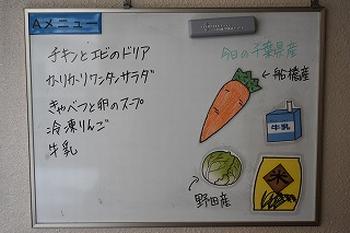 Aメニュー
チキンとエビのドリア
かりかりワンタンサラダ
きゃべつと卵のスープ
冷凍りんご
牛乳
今日の千葉県産
←船橋産
牛乳
野田産
米